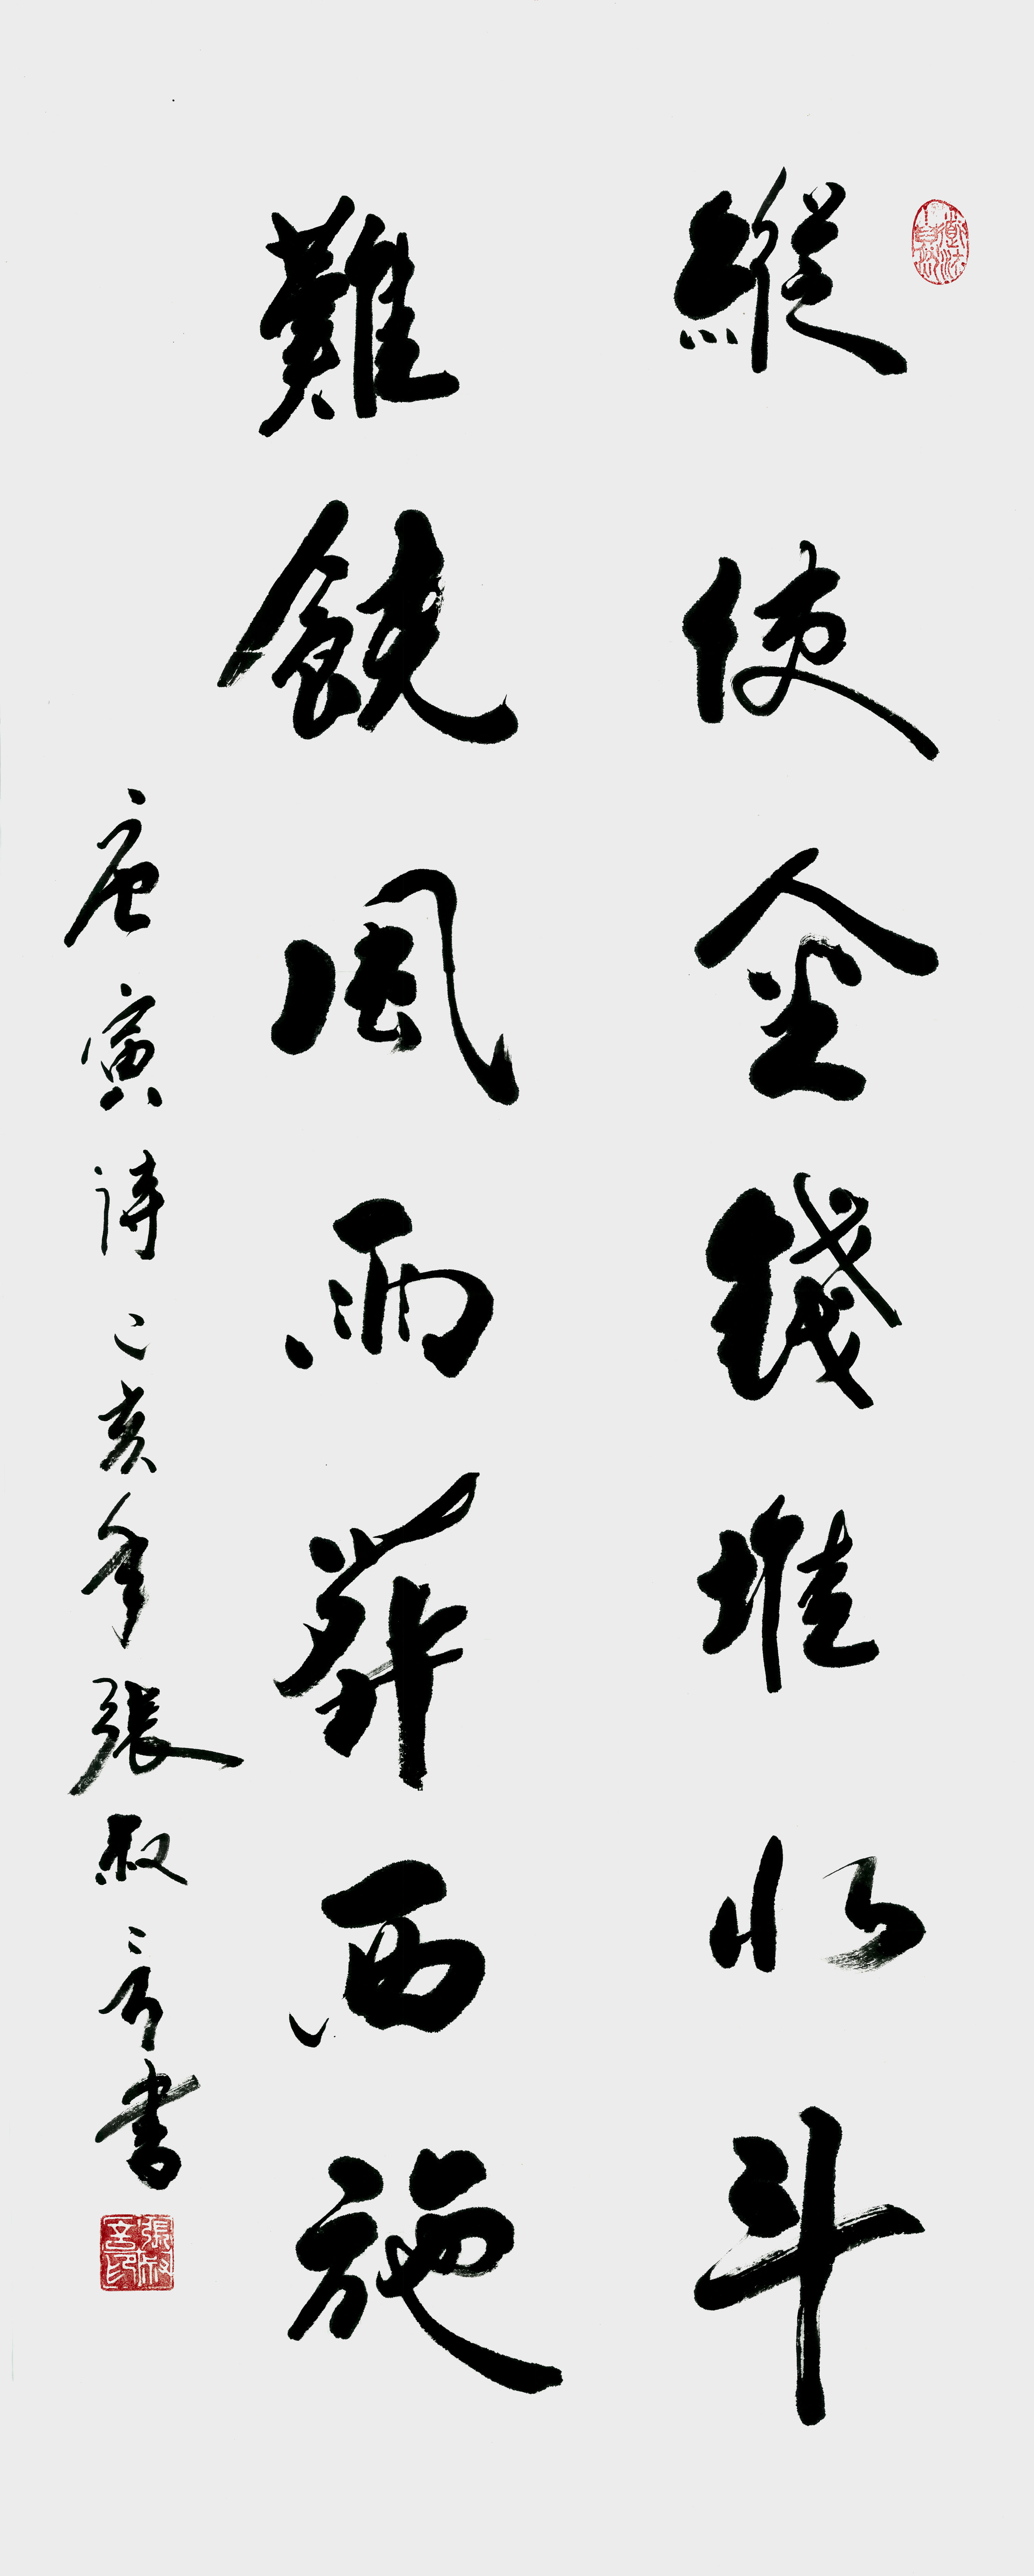 縱使金錢堆北斗
難饒風雨葬西施
唐寅詩己亥年張叔書